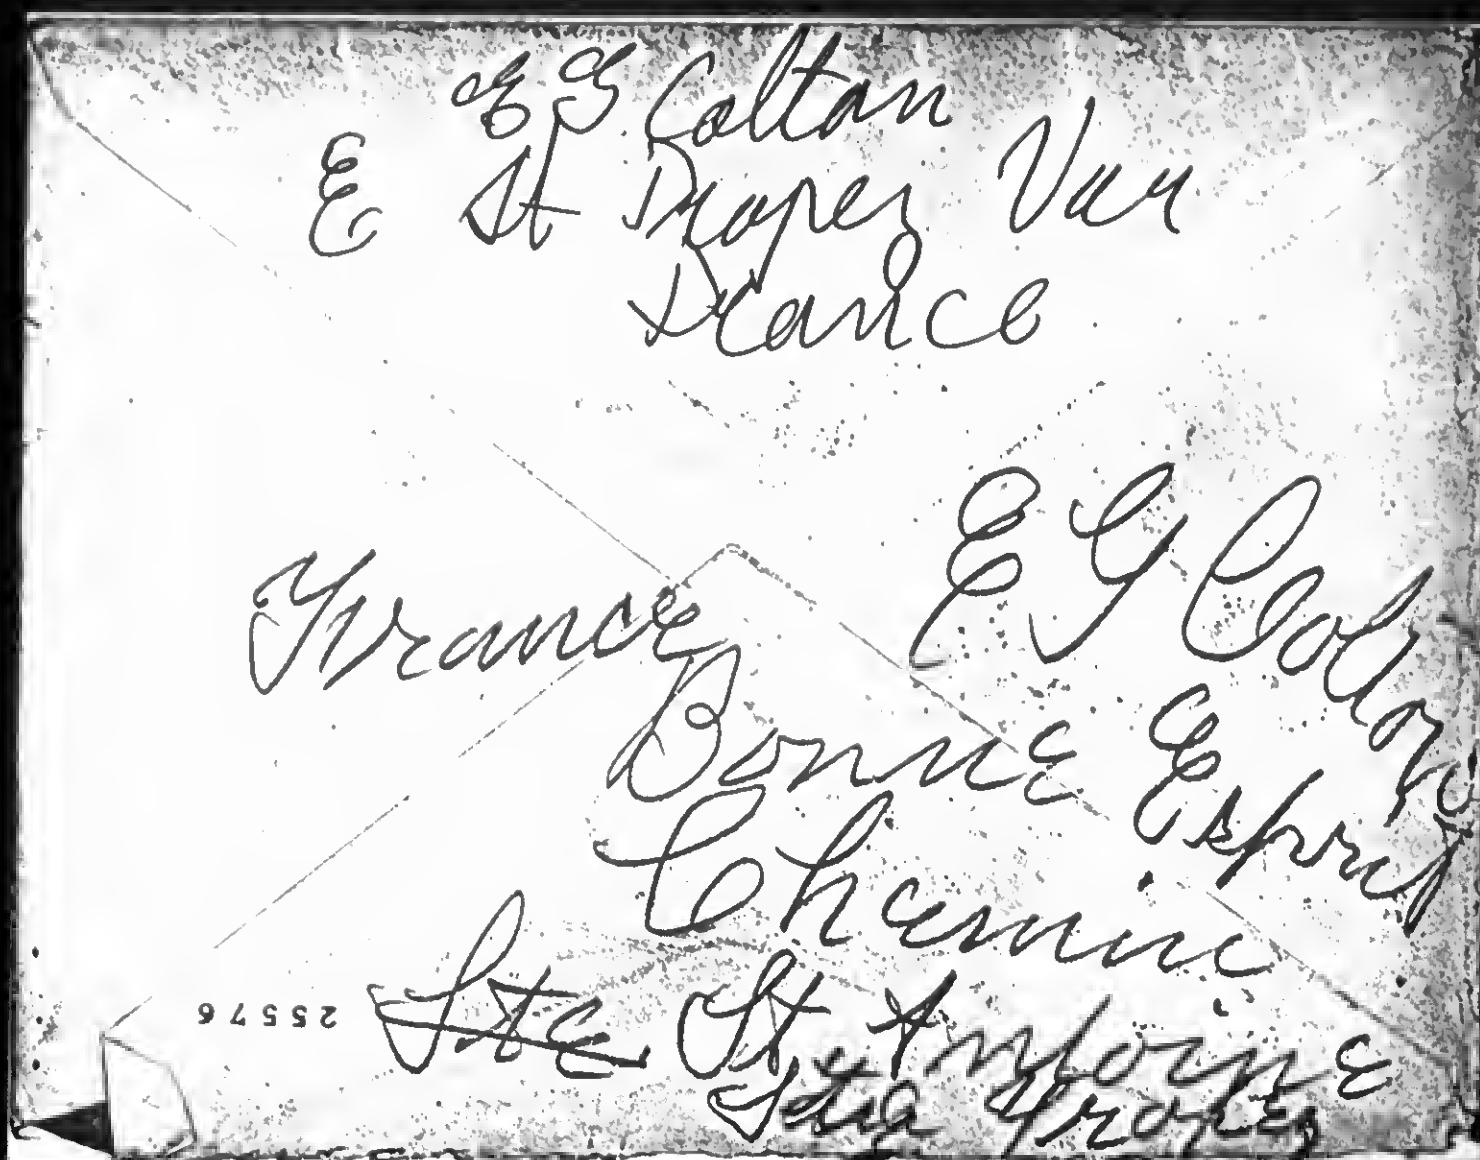 E G Coltan
E St Tropez Var
France
E G Colton
France
Bonne Esprit
Chemin
Ste St Antoine
Tropez
25576